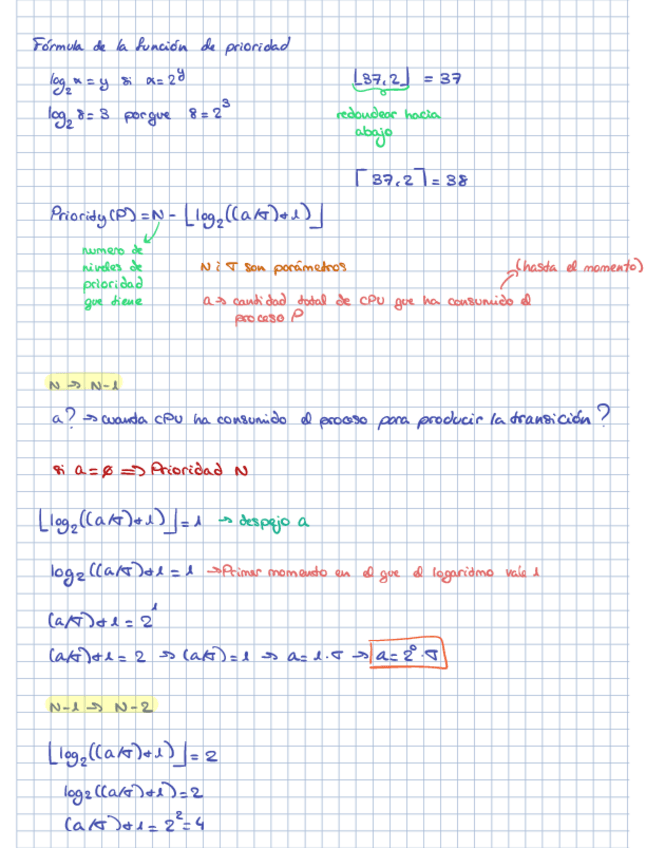 Fórmula de la función de prioridad
log₂ x = y si x = 2^y
⌊37,2⌋ = 37
log₂ 8 = 3 porque 8 = 2³
redondear hacia
abajo
⌈37,2⌉ = 38
Priority(P) = N - ⌊log₂((a/T)+1)⌋
numero de
niveles de
prioridad
que tiene
N i T son parámetros
(hasta el momento)
a → cantidad total de CPU que ha consumido el
proceso P
N → N-1
a? → cuanta CPU ha consumido el proceso para producir la transición?
si a = ø ⇒ Prioridad N
⌊log₂((a/T)+1)⌋ = 1 → despejo a
log₂((a/T)+1 = 1 → Primer momento en el que el logaritmo vale 1
(a/T)+1 = 2¹
(a/T)+1 = 2 → (a/T) = 1 → a = 1·T → a = 2⁰·T
N-1 → N-2
⌊log₂((a/T)+1)⌋ = 2
log₂((a/T)+1) = 2
(a/T)+1 = 2² = 4